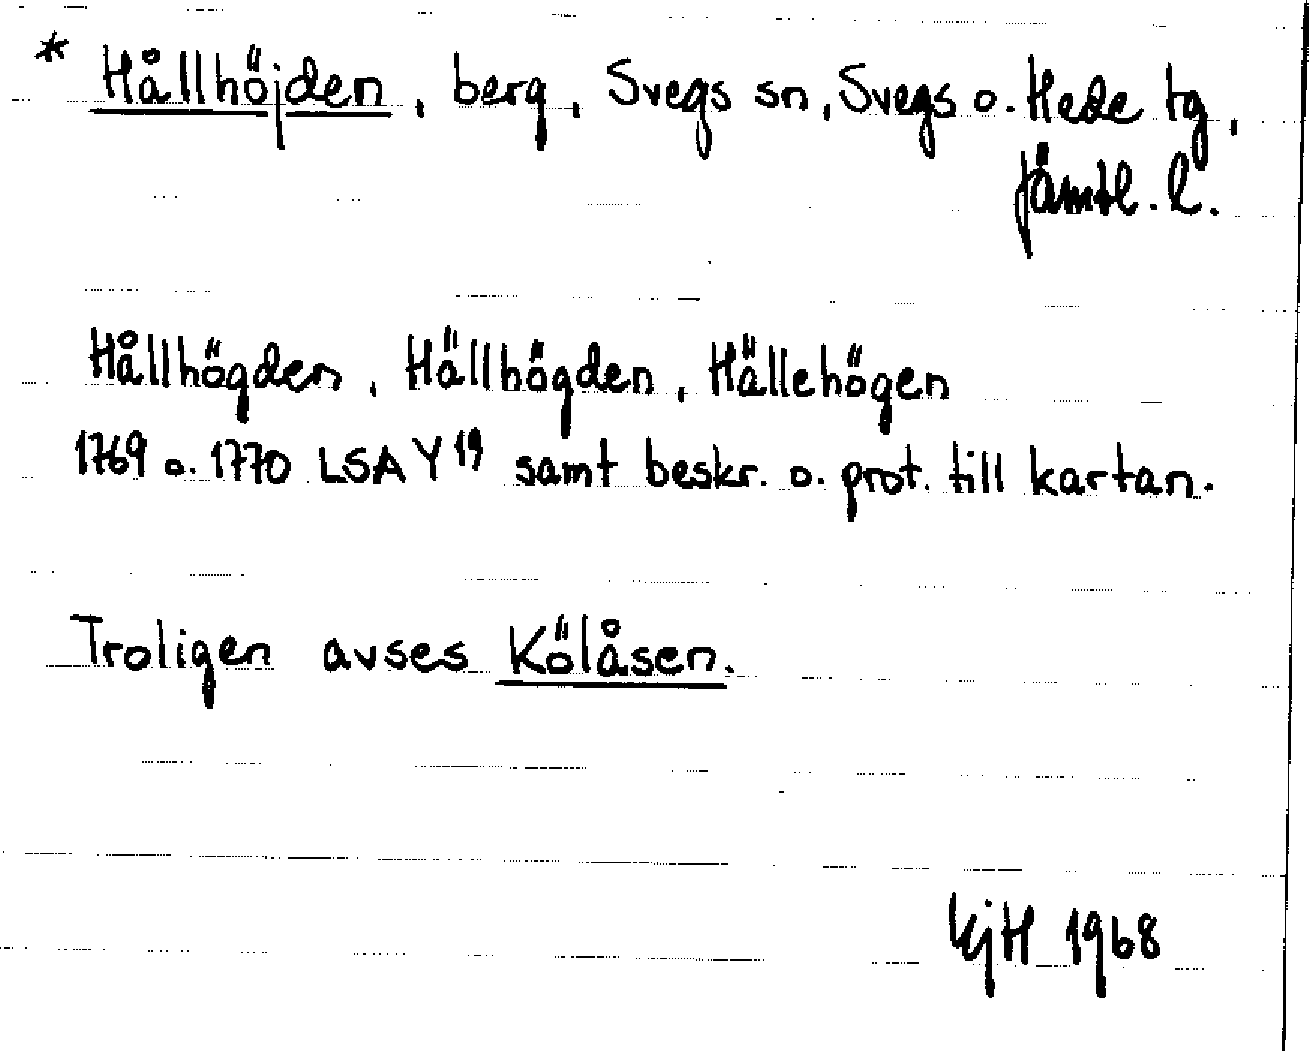 * Hållhöjden, berg, Svegs sn, Svegs o. Hede tg,
Jämtl. l.
Hållhögden, Hällhögden, Hällehögen
1769 o. 1770 LSA Y 19 samt beskr. o. prot. till kartan.
Troligen avses Kölåsen.
KjH 1968